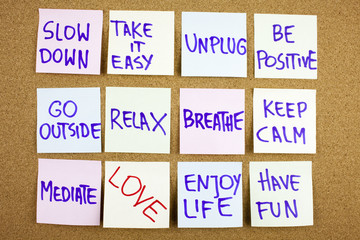 SLOW
DOWN
TAKE
IT
EASY
UNPLUG
BE
POSITIVE
GO
OUTSIDE
RELAX
BREATHE
KEEP
CALM
MEDIATE
LOVE
ENJOY
LIFE
HAVE
FUN